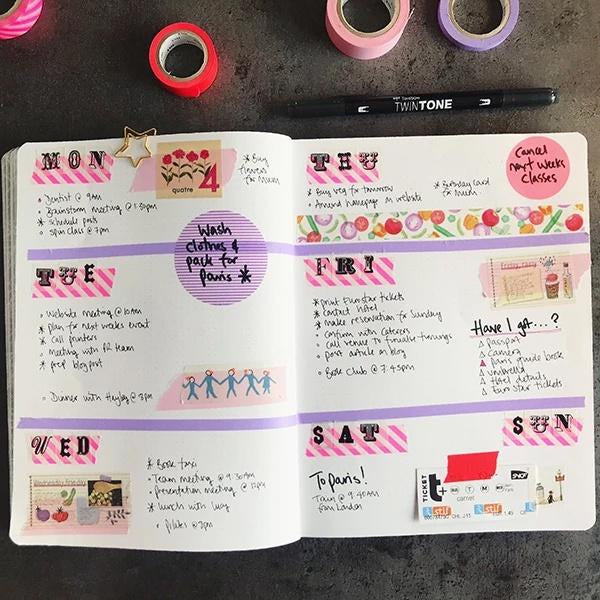 TWINTONE
MON
quatre
4
* Buy
flowers
for Mum
Dentist @ 9am
Brainstorm meeting @ 1:30pm
* Schedule posts
Spin class @ 7pm
Wash
clothes &
pack for
Paris *
TUE
Website meeting @ 10am
* plan for next weeks event
* Call printers
Meeting with PR team
* prep blog post
Dinner with Hayley @ 8pm
WED
* Book taxi
Team meeting @ 9:30am
Presentation meeting @ 12pm
* lunch with Lucy
Pilates @ 7pm
THU
* Buy veg for tomorrow
Amend homepage on website
* Birthday card
for Mum
Cancel
next weeks
classes
FRI
* print Eurostar tickets
* Contact hotel
* Make reservation for Sunday
Confirm with caterers
Call venue to finalise timings
post article on blog
Book Club @ 7:45pm
Have I got...?
passport
Camera
Paris guide book
Umbrella
Hotel details
Eurostar tickets
SAT
To Paris!
Train @ 9:40am
from London
SUN
TICKET
t+
SNCF
carnet
stif